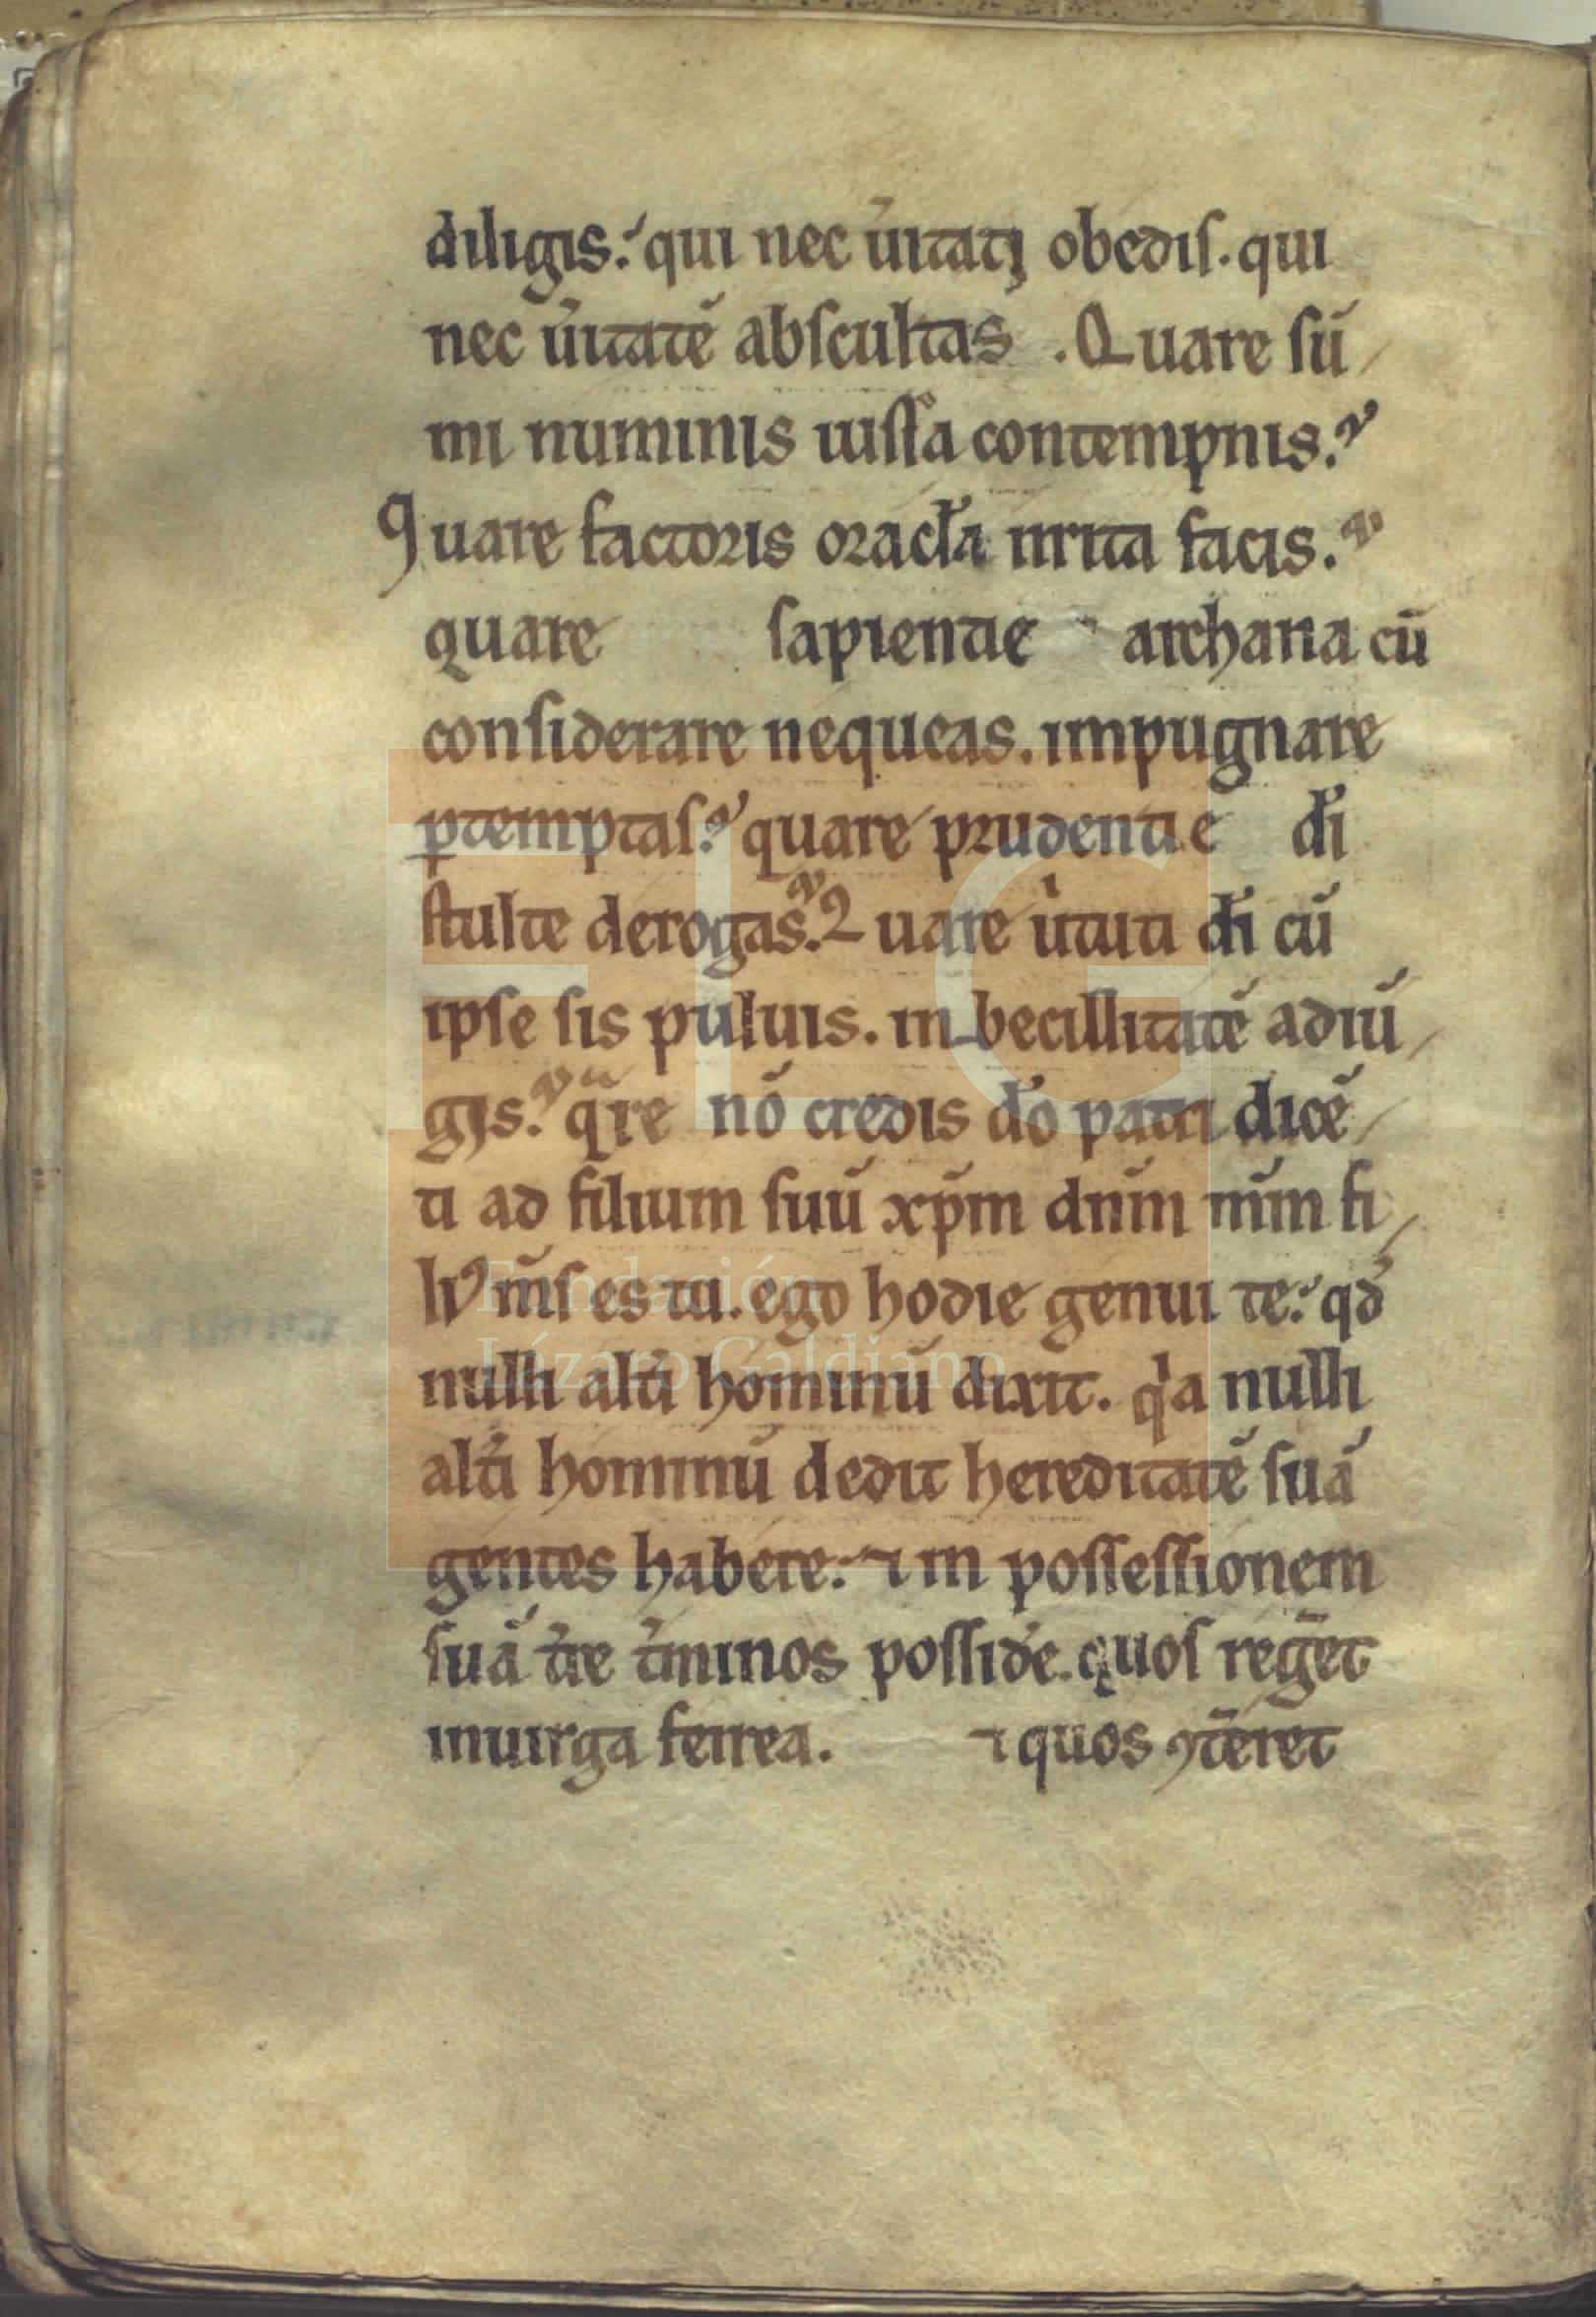 diligis. qui nec ũitati obedis. qui
nec ũitatẽ abscultas. Quare sũ
mi numinis iussa contempnis?
Quare factoris oracl̃a irrita facis?
quare sapientie archana cũ
considerare nequeas. impugnare
ꝑtemptas? quare prudentie di̅
stulte derogas? Quare ũtuti di̅ cũ
ipse sis puluis. inbecillitatẽ adiũ
gis? q̃re nõ credis do̅ patri dicẽ
ti ad filium suũ xp̃m dñm nr̃m fi
li9 m̃s es tu. ego hodie genui te. qđ
nulli alt̃i hominũ dixit. qia nulli
alt̃i hominũ dedit hereditatẽ suã
gentes habere. ⁊ in possessionem
suã t̃re t̃minos posside. quos regẽt
inuirga ferrea. ⁊ quos ꝯtẽret
Fundación
Lázaro Galdiano
FLG